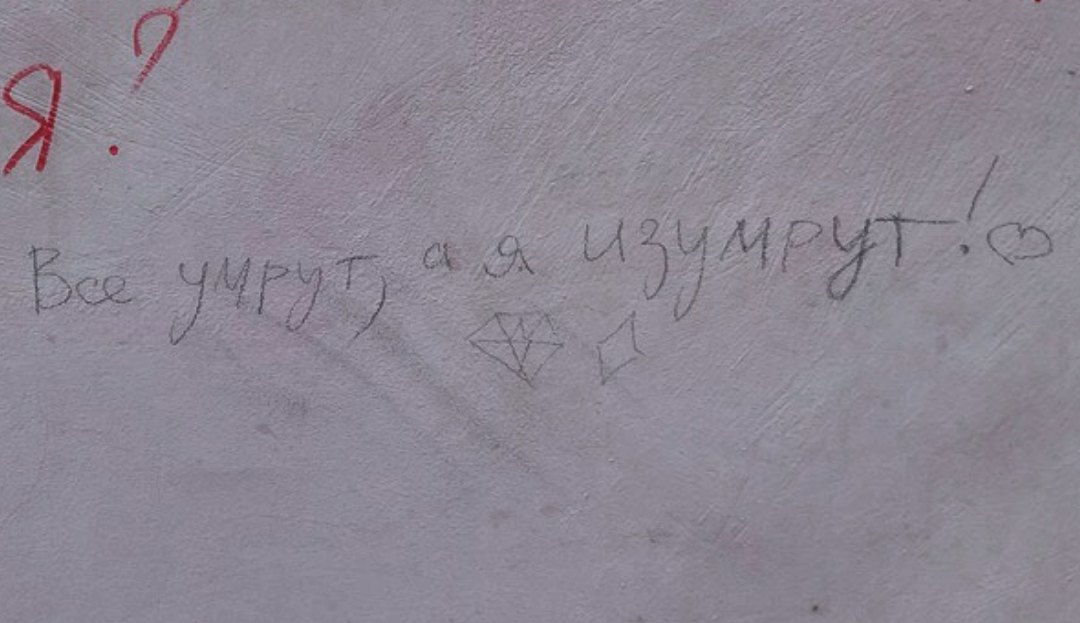 Я?
Все умрут, а я изумрут!♡